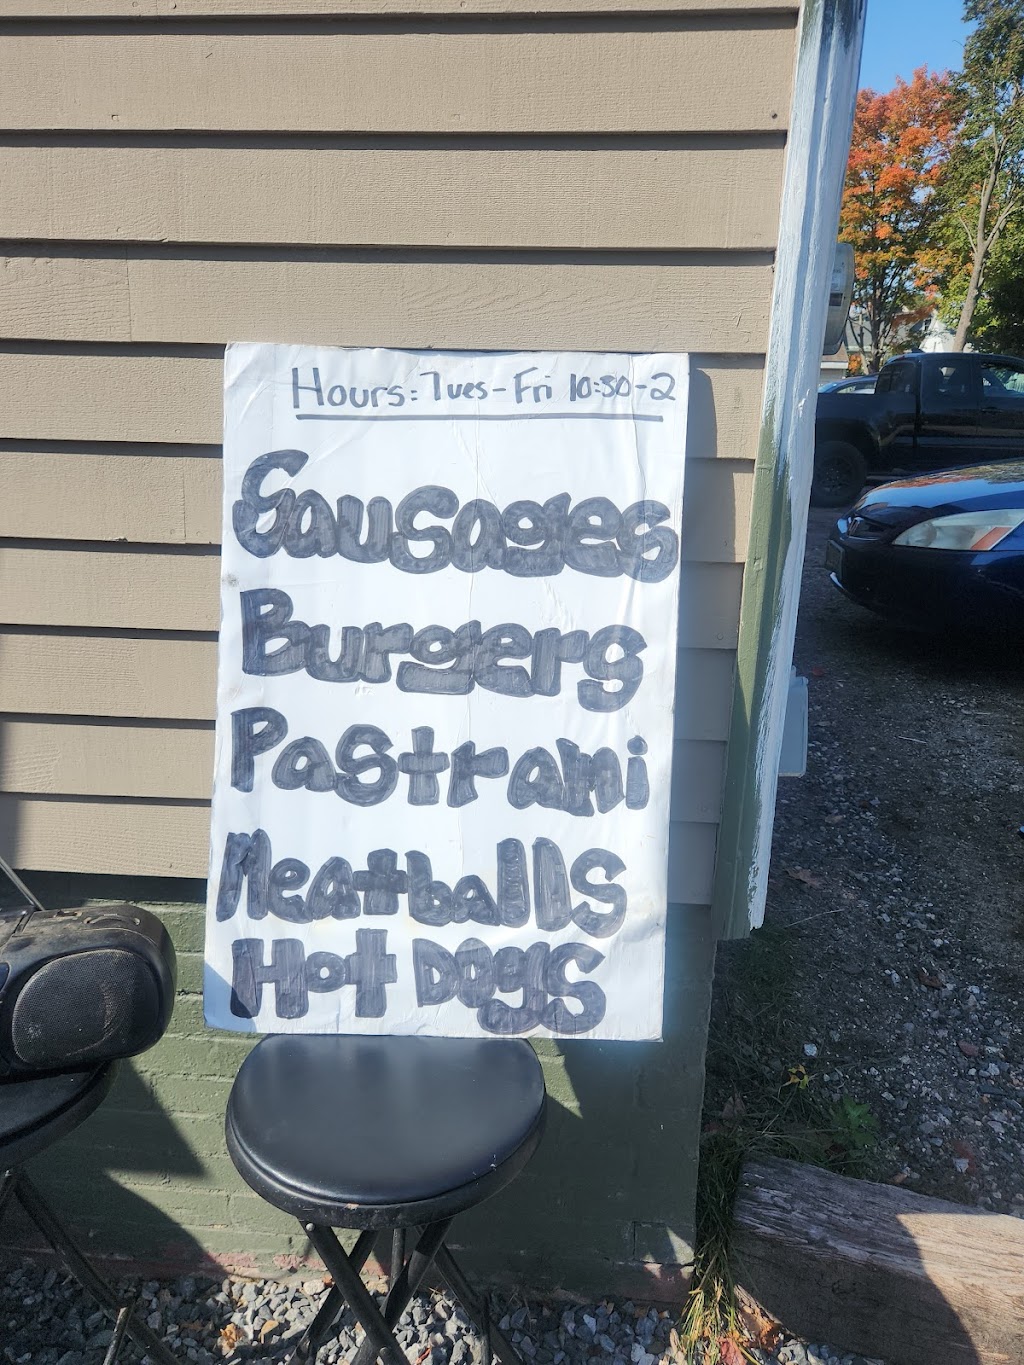 Hours: Tues-Fri 10:30-2
Sausages
Burgers
Pastrami
Meatballs
Hot Dogs